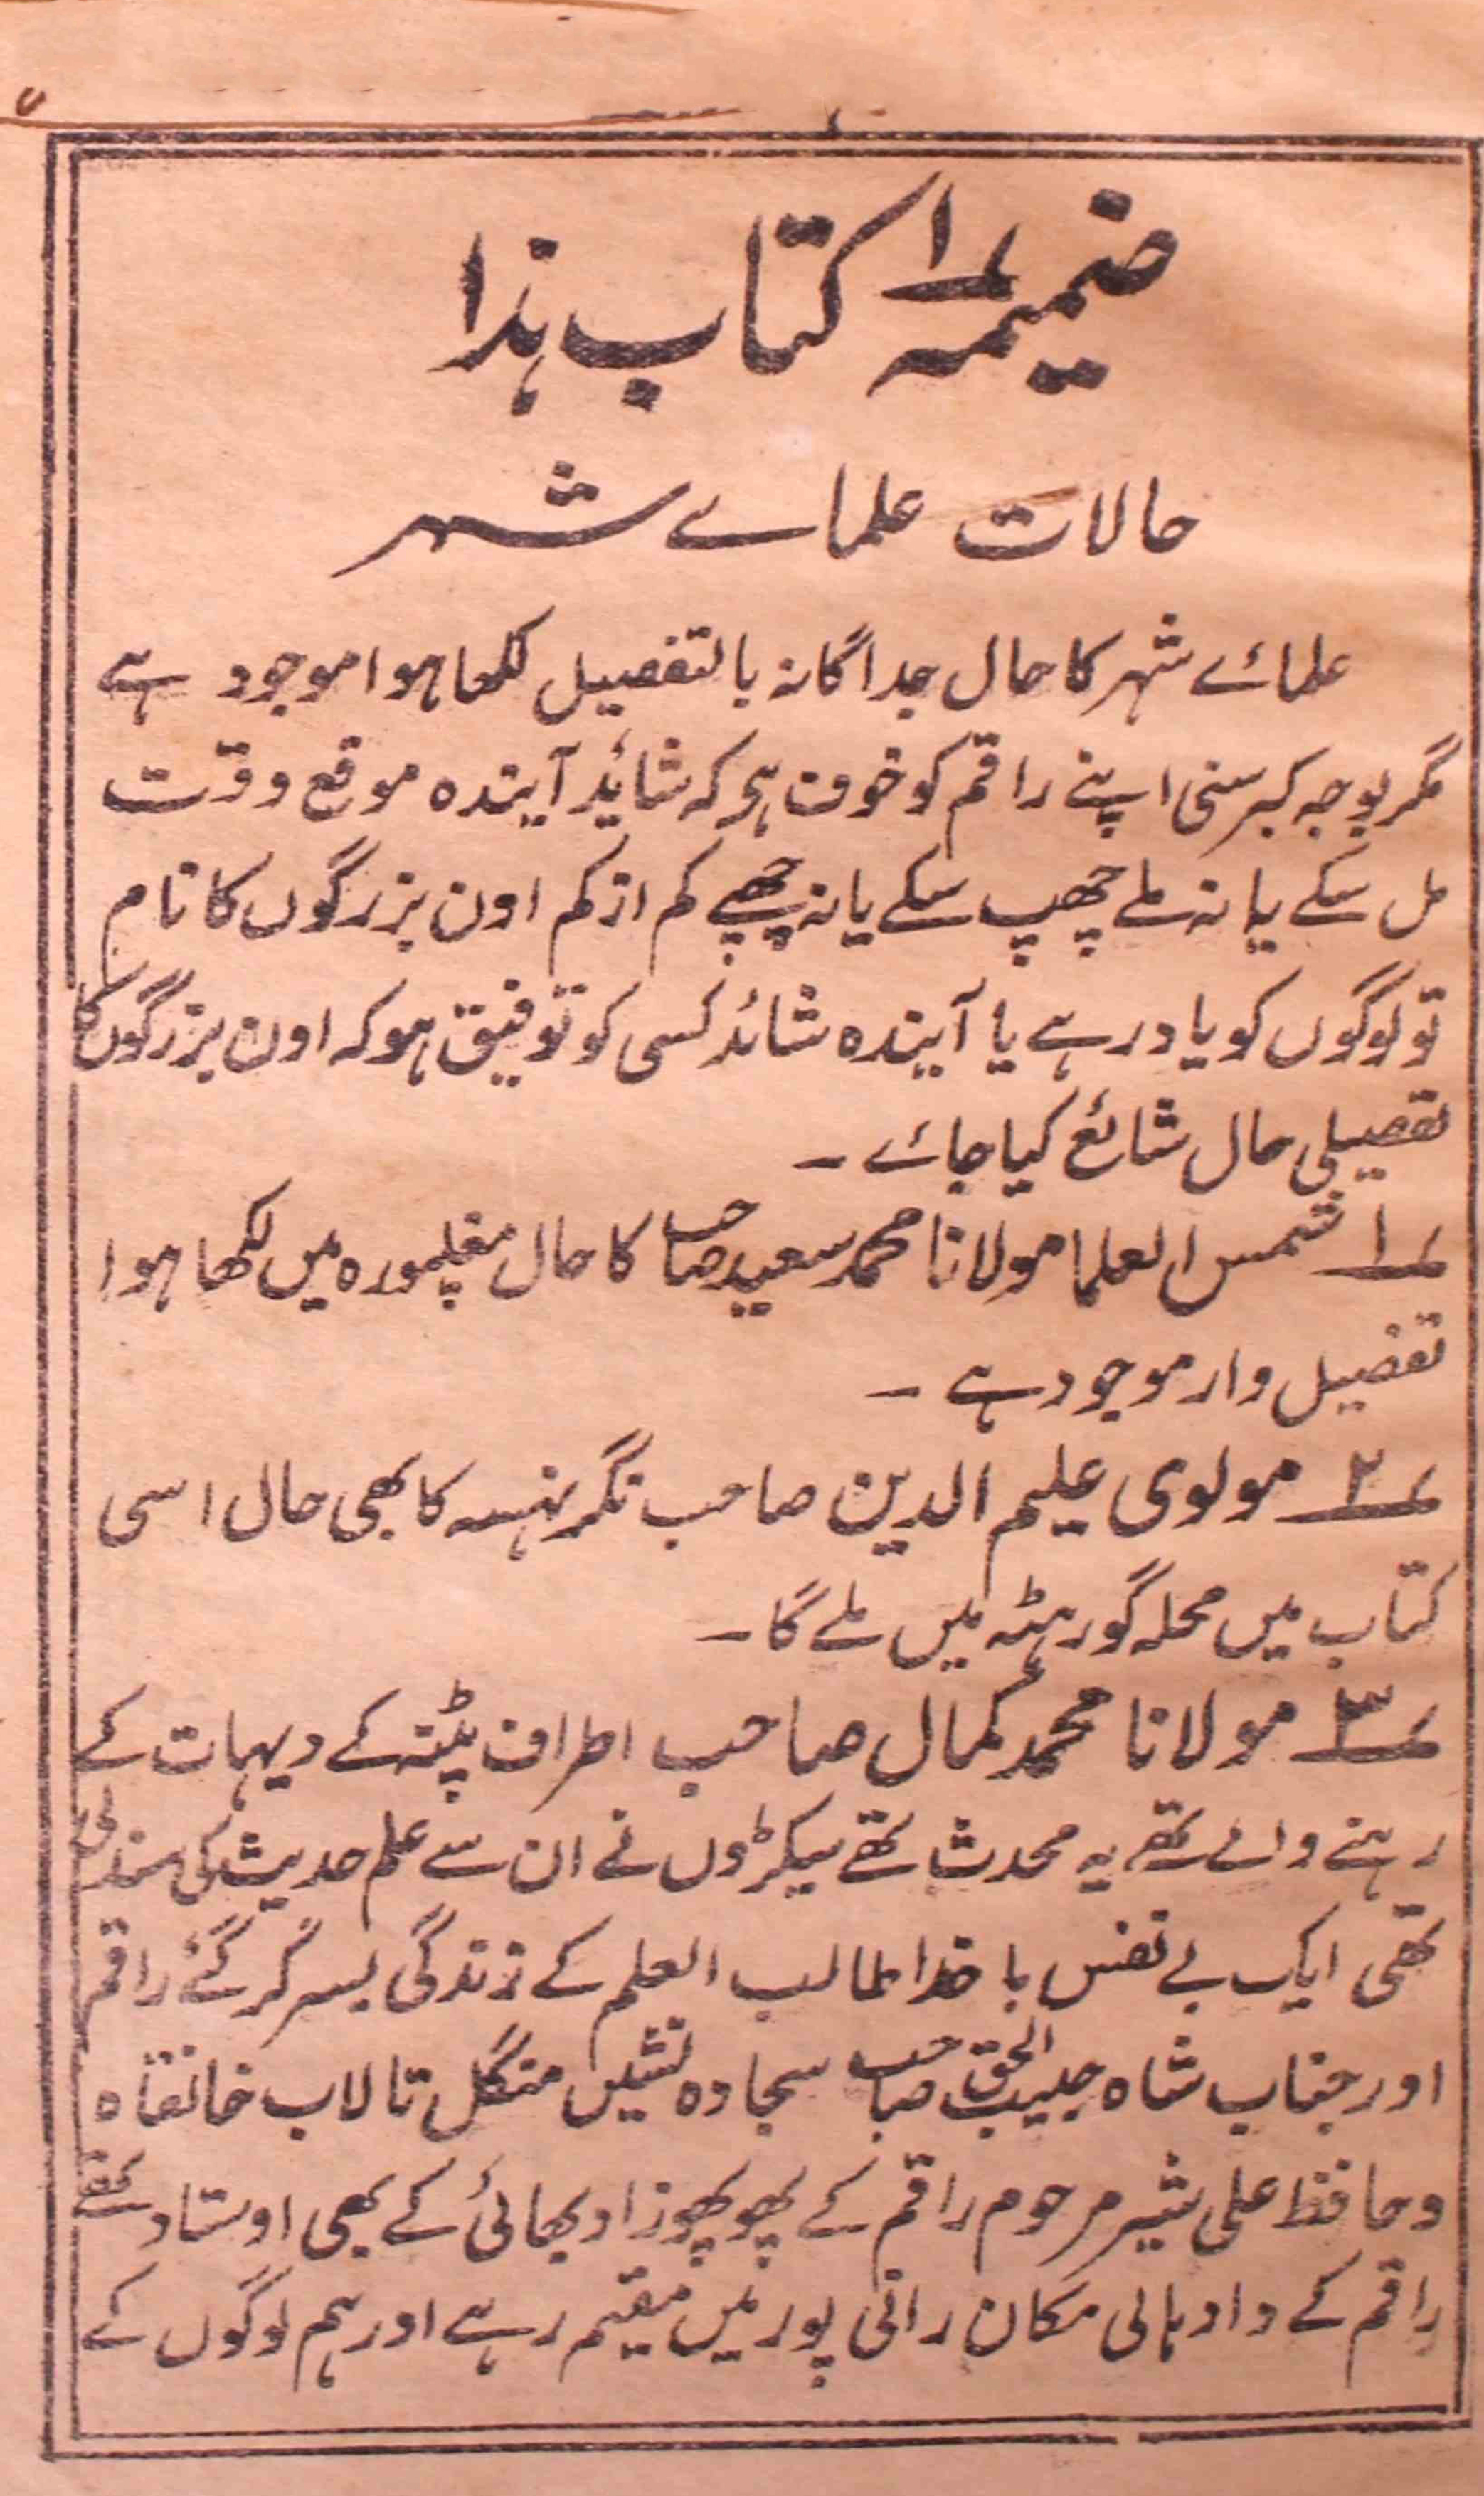 ضمیمہ ۱؎ کتاب ہذا
حالات علماے شہر
علمائے شہر کا حال جداگانہ بالتفصیل لکھا ہوا موجود ہے
مگر بوجہ کبر سنی اپنے راقم کو خوف ہی کہ شائد آیندہ موقع وقت
مل سکے یا نہ ملے چھپ سکے یا نہ چھپے کم از کم اون بزرگوں کا نام
تو لوگوں کو یاد رہے یا آیندہ شائد کسی کو توفیق ہو کہ اون بزرگوں کا
تفصیلی حال شائع کیا جائے ۔
۱؎ شمس العلما مولانا محمد سعید صاحب کا حال مغلپورہ میں لکھا ہوا
تفصیل وار موجود ہے ۔
۲؎ مولوی علیم الدین صاحب نگرنہسہ کا بھی حال اسی
کتاب میں محلہ گورہٹہ میں ملے گا ۔
۳؎ مولانا محمد کمال صاحب اطراف پٹنہ کے دیہات کے
رہنے والے تھے یہ محدث تھے سیکڑوں نے ان سے علم حدیث کی سند لی
تھی ایک بے نفس با خدا طالب العلم کے زندگی بسر کر گئے راقم
اور جناب شاہ حبیب الحق صاحب سجادہ نشیں منگل تالاب خانقاہ
و حافظ علی شیر مرحوم راقم کے پھوپھوزاد بھائی کے بھی اوستاد تھے
راقم کے دادہالی مکان رانی پور میں مقیم رہے اور ہم لوگوں کے